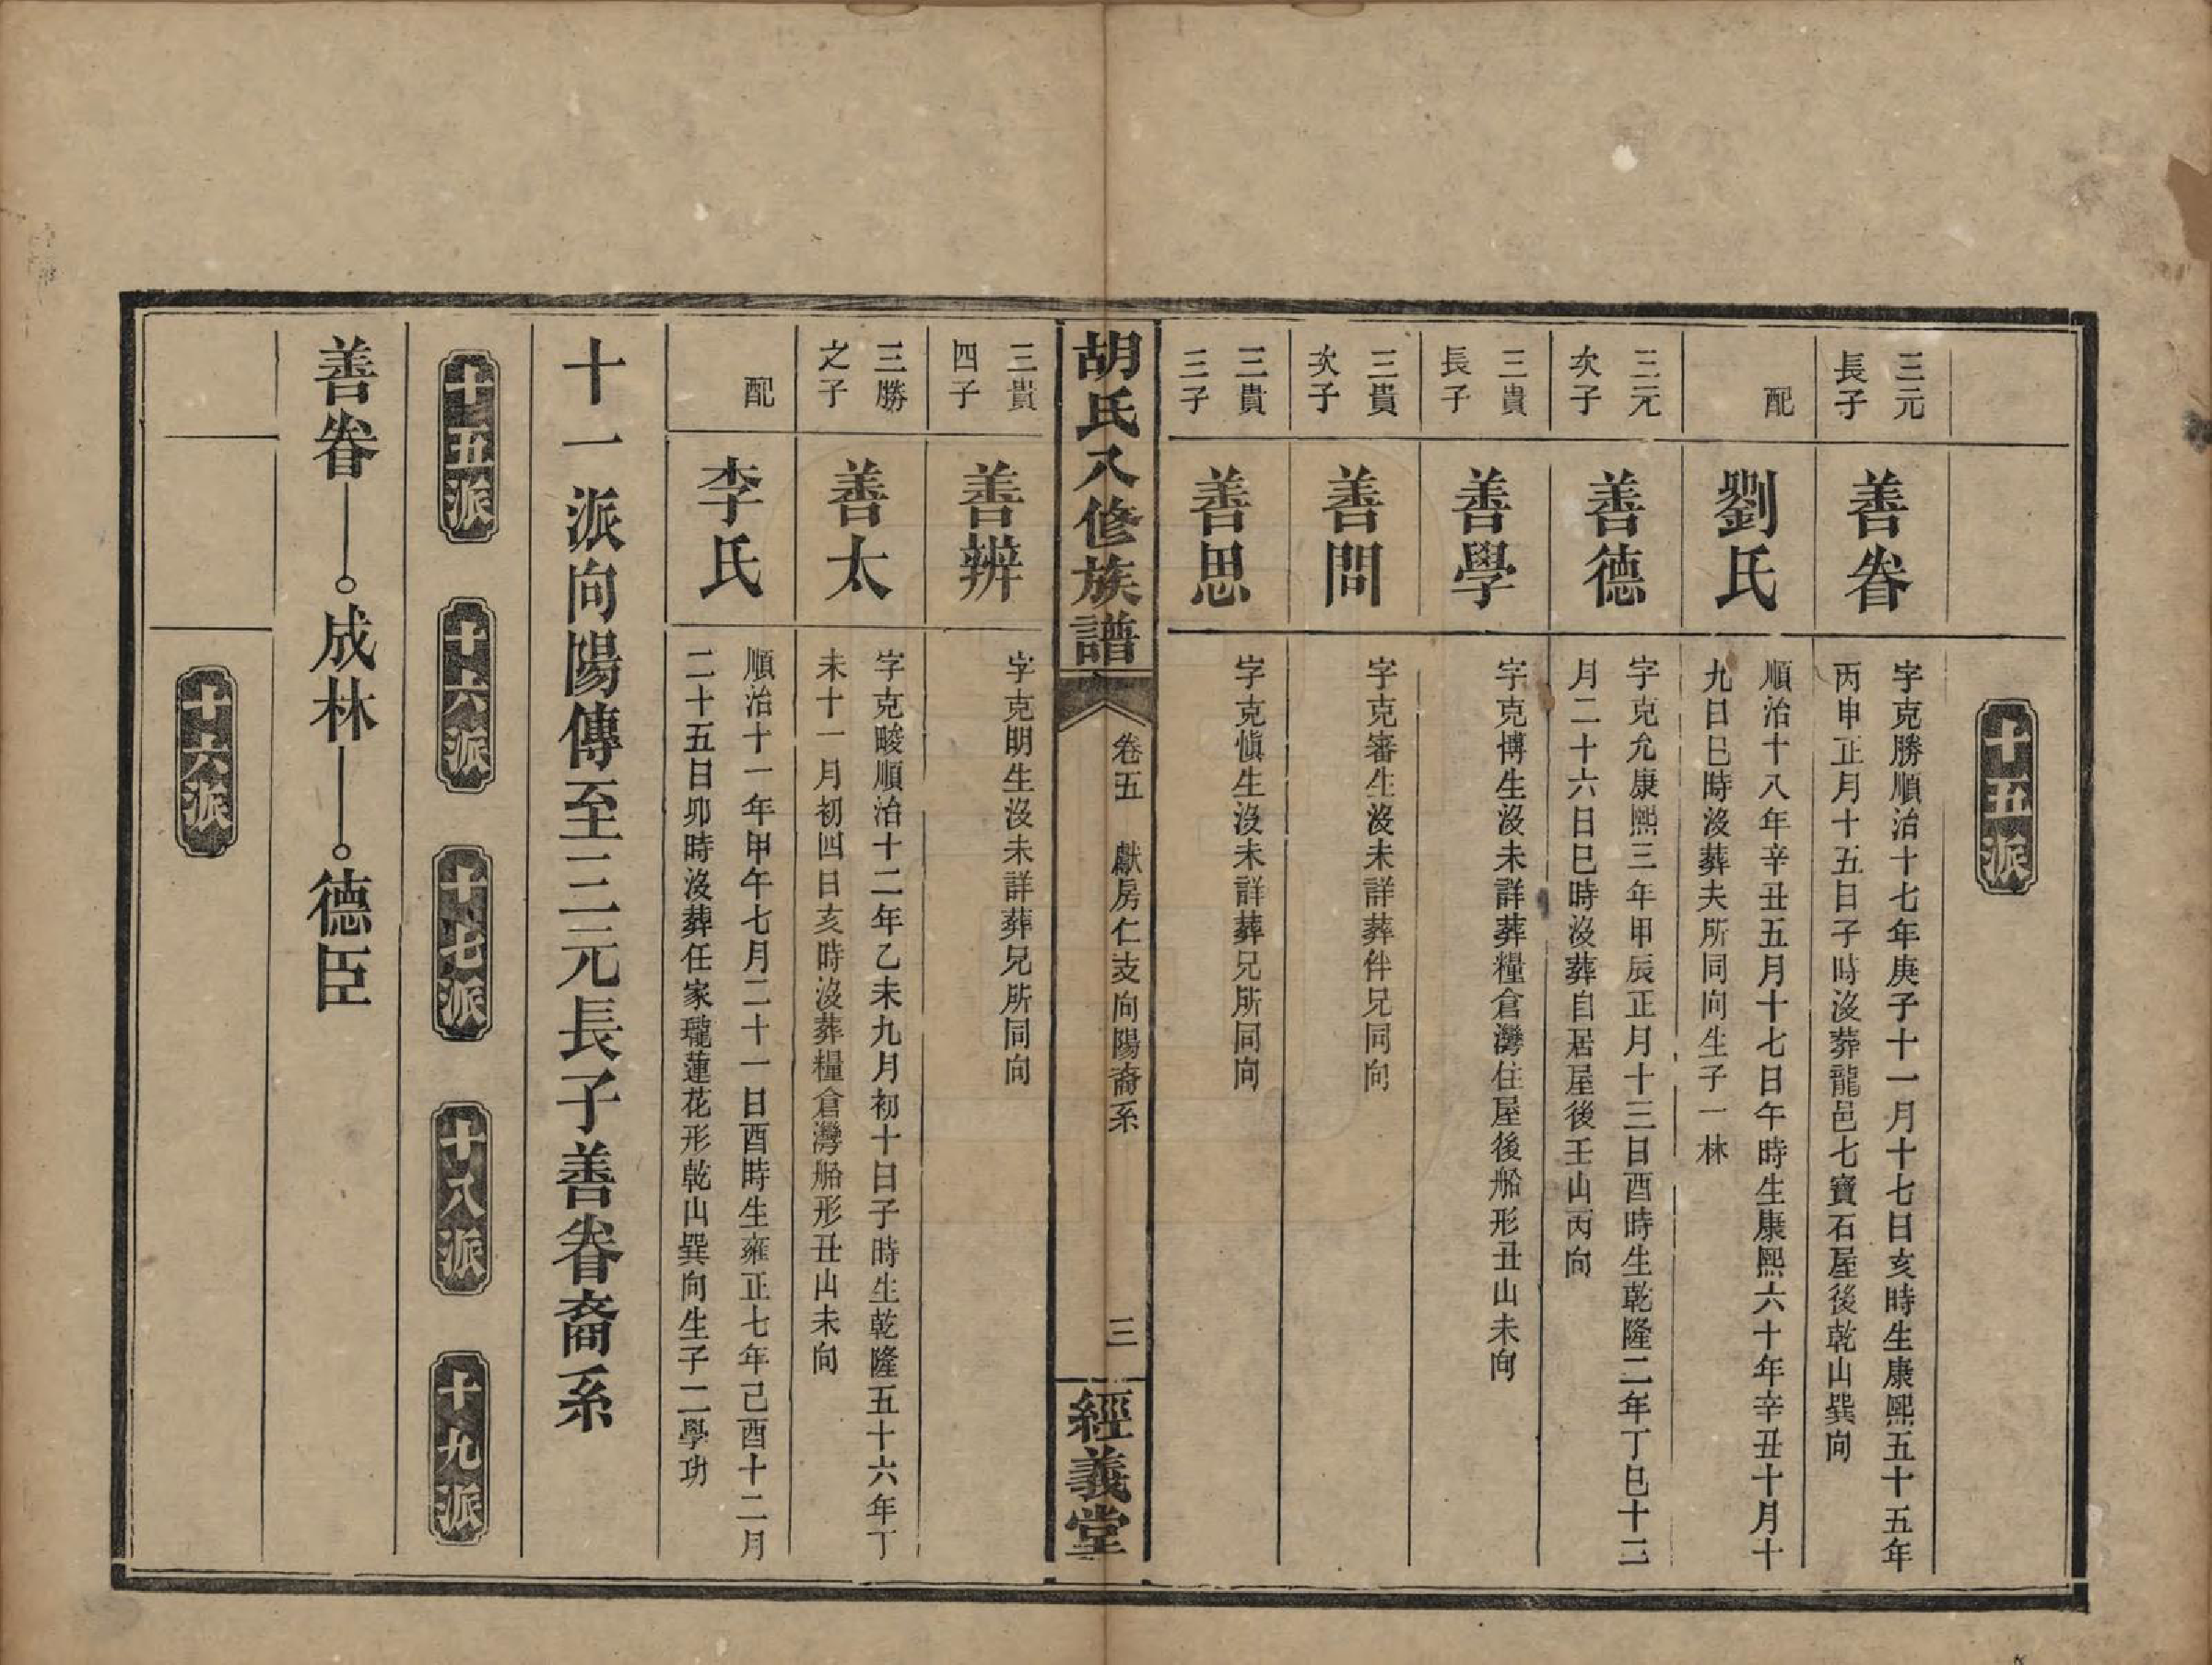 十五派
三元
長子
善眷
字克勝順治十七年庚子十一月十七日亥時生康熙五十五年
丙申正月十五日子時沒葬龍邑七寶石屋後乾山巽向
配
劉氏
順治十八年辛丑五月十七日午時生康熙六十年辛丑十月十
九日巳時沒葬夫所同向生子一林
三元
次子
善德
字克允康熙三年甲辰正月十三日酉時生乾隆二年丁巳十二
月二十六日巳時沒葬自居屋後壬山丙向
三貴
長子
善學
字克博生沒未詳葬糧倉灣住屋後船形丑山未向
三貴
次子
善問
字克審生沒未詳葬伴兄同向
三貴
三子
善思
字克慎生沒未詳葬兄所同向
胡氏八修族譜
卷五 獻房仁支向陽裔系
三
經義堂
三貴
四子
善辨
字克明生沒未詳葬兄所同向
三勝
之子
善太
字克畯順治十二年乙未九月初十日子時生乾隆五十六年丁
未十一月初四日亥時沒葬糧倉灣船形丑山未向
配
李氏
順治十一年甲午七月二十一日酉時生雍正七年己酉十二月
二十五日卯時沒葬任家瓏蓮花形乾山巽向生子二學功
十一派向陽傳至三元長子善眷裔系
十五派 十六派 十七派 十八派 十九派
善眷 成林 德臣
十六派